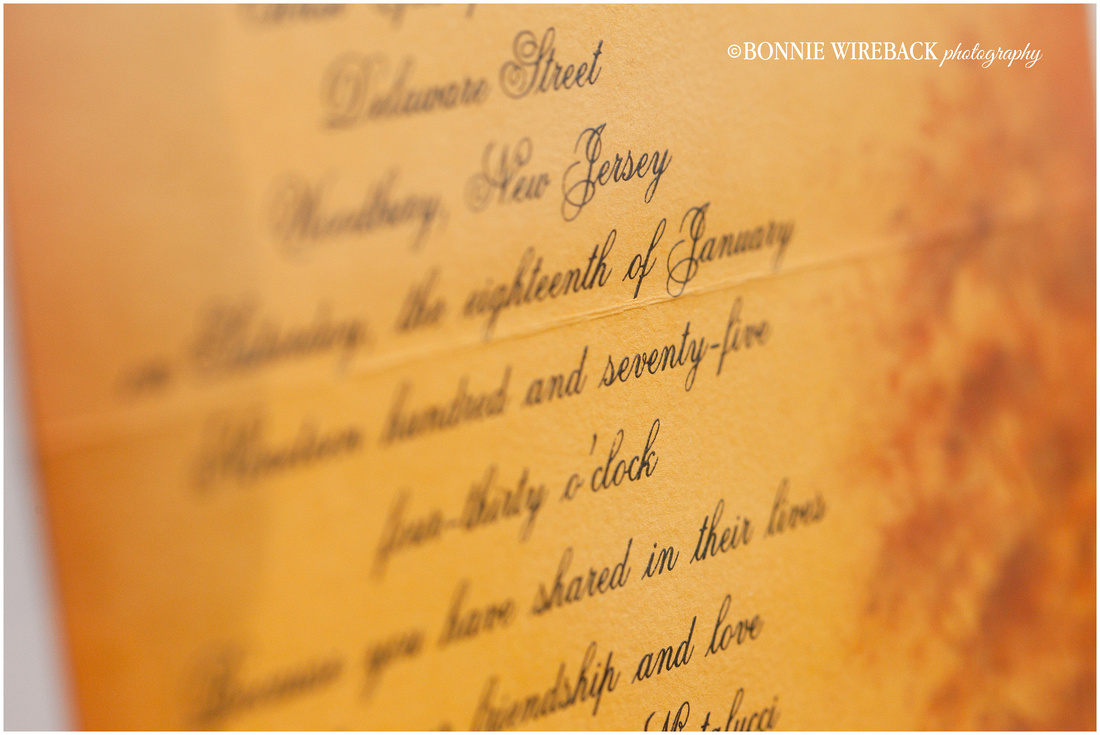 ©BONNIE WIREBACK photography
Delaware Street
Woodbury, New Jersey
on Saturday, the eighteenth of January
Nineteen hundred and seventy-five
four-thirty o'clock
Because you have shared in their lives
friendship and love